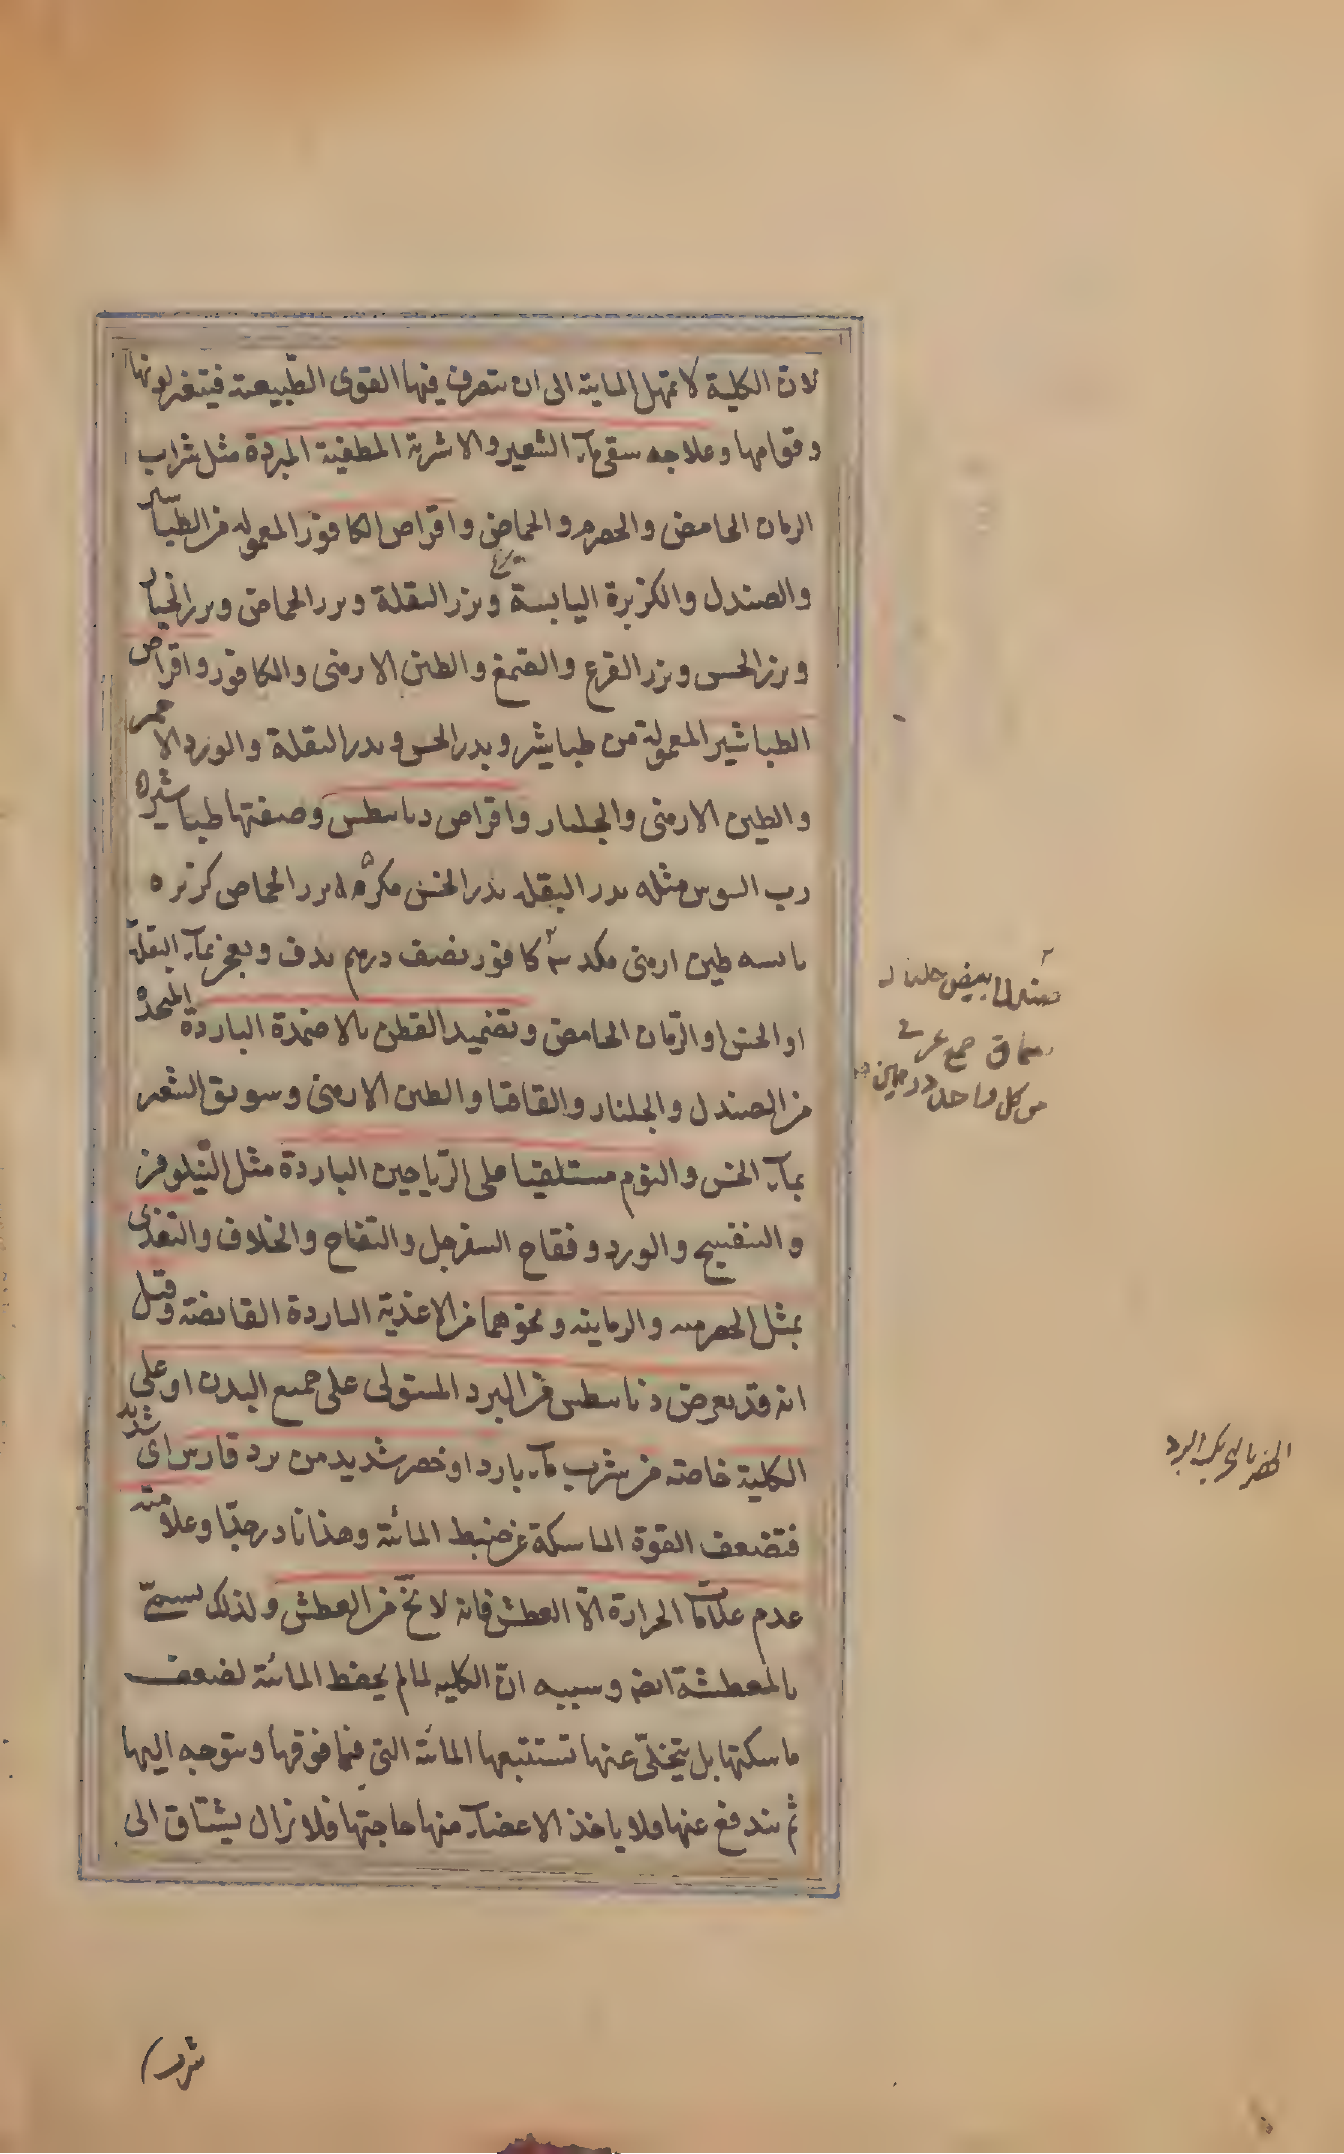 لان الكلية لا تمهل المائية الى ان تتصرف فيها القوى الطبيعية فيتغير لونها
وقوامها وعلاجه سقى ماء الشعير والاشربة المطفية المبردة مثل شراب
الرمان الحامض والحصرم والحماض واقراص الكافور المعموله من الطباشير
والصندل والكزبرة اليابسة وبزر البقلة وبزر الحماض وبزر الخيار
وبزر الخس وبزر القرع والصمغ والطين الارمنى والكافور واقراص
الطباشير المعمولة من طباشير وبزر الخس وبزر البقلة والورد الاحمر
والطين الارمنى والجلنار واقراص ديابيطس وصفتها طباشير ه
رب السوس مثله بزر البقله بزر الخس مكد ه بزر الحماص كزبره
يابسه طين ارمنى مكد ٣ كافور نصف درهم يدق ويعجن بماء البقلة
او الخس او الرّمان الحامض وتضميد القطن بالاضمدة الباردة المتخذة
من الصندل والجلنار والقاقيا والطين الارمنى وسويق الشعير
بماء الخس والنوم مستلقيا على الرّياحين الباردة مثل النّيلوفر
والبنفسج والورد وفقاح السفرجل والتفاح والخلاف والتغذى
بمثل الحصرميه والرمانيه ونحوهما من الاغذية الباردة القابضة وقيل
انه قد يعرض ديابيطس من البرد المستولى على جميع البدن او على
الكلية خاصة من شرب ماء بارد او خصر شديد من برد قارس اى شديد
فتضعف القوة الماسكة عن ضبط المائية وهذا نادر جدّا وعلامته
عدم علامات الحرارة الّا العطش فانه لا يخ من العطش ولذلك يسمّى
بالمعطشة ايضا وسببه انّ الكليه لما لم يحفظ المائية لضعف
ماسكتها بل يتخلّى عنها تستتبعها المائية التى فيما فوقها ويتوجه اليها
ثم يندفع عنها ولا ياخذ الاعضاء منها حاجتها فلا يزال يشتاق الى
صندل ابيض جلنار
سماق صمغ عربى
من كل واحد درهمين
الخصر بالتحريك البرد
شرب